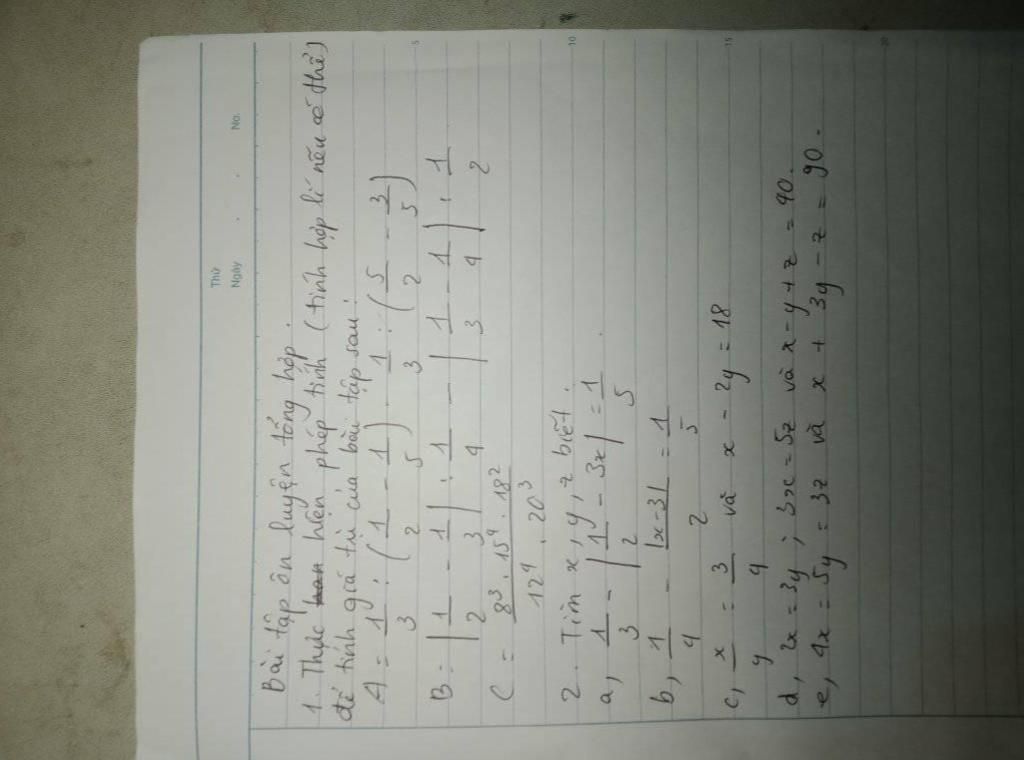 Thứ
Ngày . . No.
Bài tập ôn luyện tổng hợp.
1. Thực hiện phép tính (tính hợp lí nếu có thể)
để tính giá trị của bài tập sau:
A = 1/3 : (1/2 - 1/5) - 1/3 : (5/2 - 3/5)
B = |1/2 - 1/3| : 1/4 - |1/3 - 1/4| : 1/2
C = 8³ . 15⁴ . 18² / 12⁴ . 20³
2. Tìm x, y, z biết:
a, 1/3 - |1/2 - 3x| = 1/5.
b, 1/4 - |x-3|/2 = 1/5
c, x/y = 3/4 và x - 2y = 18
d, 2x = 3y ; 3x = 5z và x - y + z = 90.
e, 4x = 5y = 3z và x + 3y - z = 90.
5
10
15
20